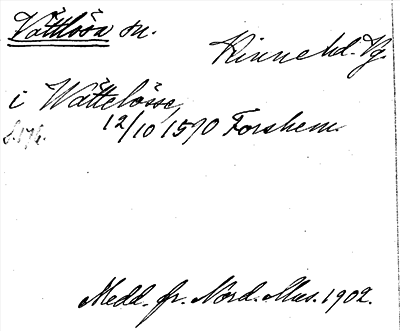 Vättlösa sn.
Kinne hd. Vg.
i Wättelösse,
12/10 1570 Forshem.
s. 174.
Medd. fr. Nord. Mus. 1902.